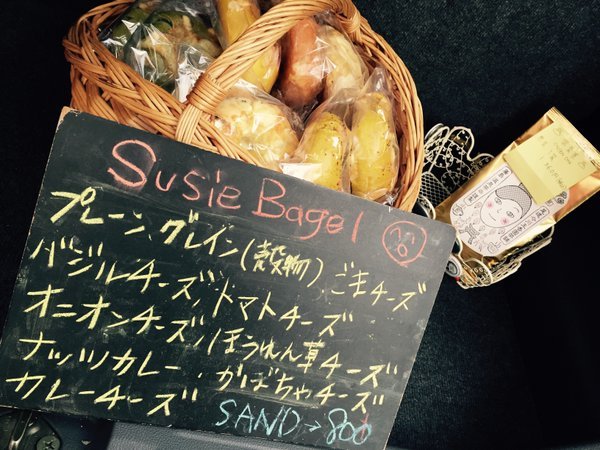 Susie Bagel
プレーン、グレイン(穀物)、ごまチーズ
バジルチーズ、トマトチーズ
オニオンチーズ、ほうれん草チーズ
ナッツカレー、かぼちゃチーズ
カレーチーズ
SAND→800